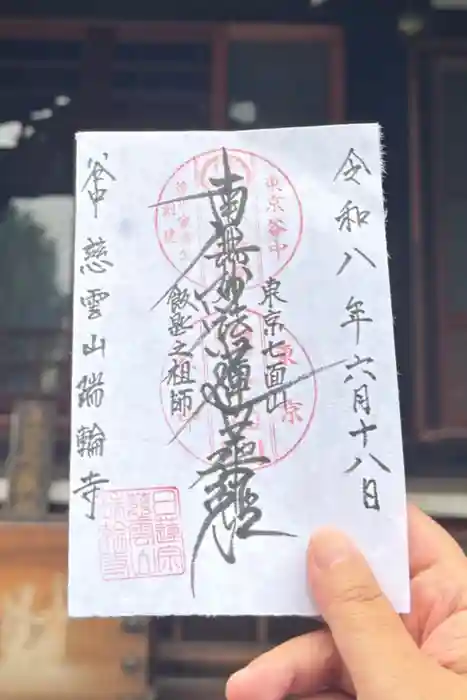 令和八年六月十八日
東京七面山
南無妙法蓮華経
飯匙之祖師
谷中 慈雲山瑞輪寺
東京谷中
東京
日蓮宗
慈雲山
瑞輪寺